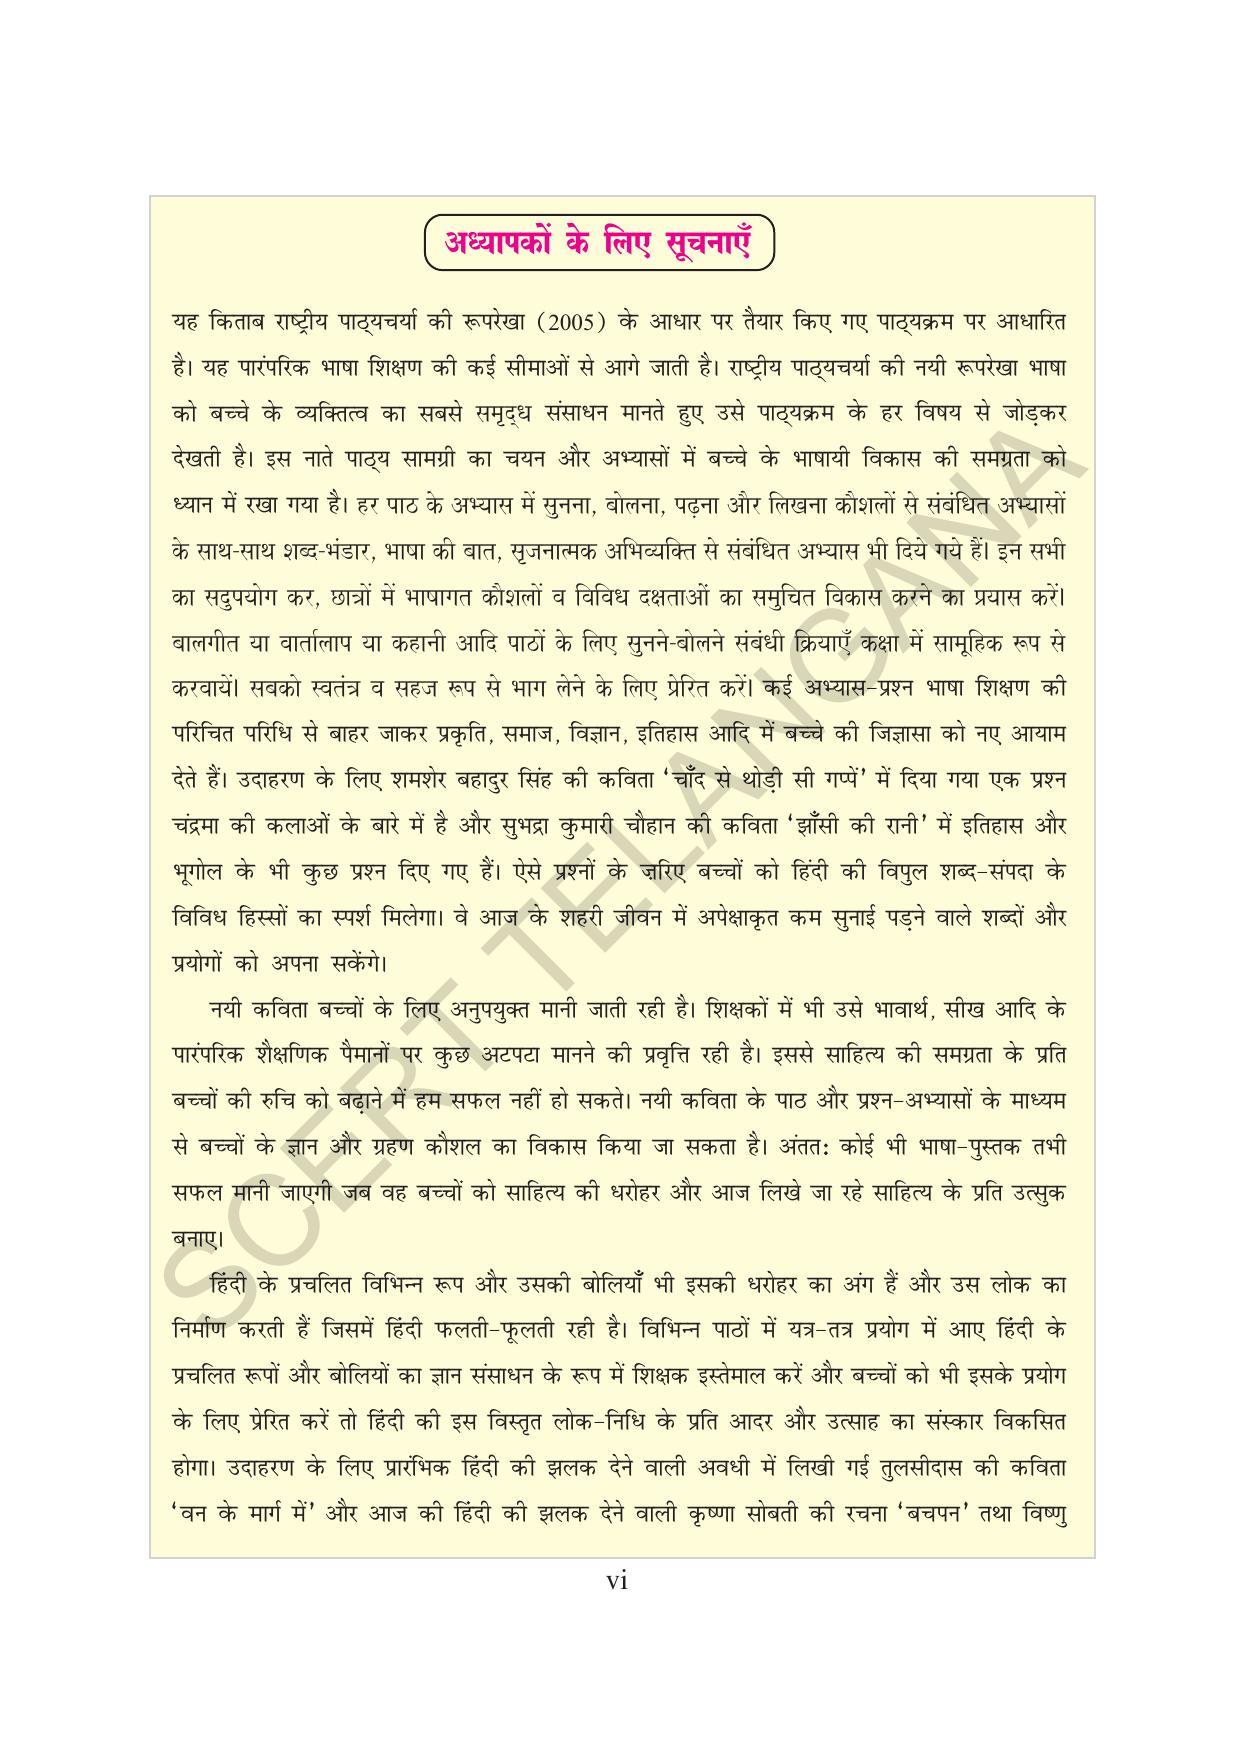 अध्यापकों के लिए सूचनाएँ
यह किताब राष्ट्रीय पाठ्यचर्या की रूपरेखा (2005) के आधार पर तैयार किए गए पाठ्यक्रम पर आधारित
है। यह पारंपरिक भाषा शिक्षण की कई सीमाओं से आगे जाती है। राष्ट्रीय पाठ्यचर्या की नयी रूपरेखा भाषा
को बच्चे के व्यक्तित्व का सबसे समृद्ध संसाधन मानते हुए उसे पाठ्यक्रम के हर विषय से जोड़कर
देखती है। इस नाते पाठ्य सामग्री का चयन और अभ्यासों में बच्चे के भाषायी विकास की समग्रता को
ध्यान में रखा गया है। हर पाठ के अभ्यास में सुनना, बोलना, पढ़ना और लिखना कौशलों से संबंधित अभ्यासों
के साथ-साथ शब्द-भंडार, भाषा की बात, सृजनात्मक अभिव्यक्ति से संबंधित अभ्यास भी दिये गये हैं। इन सभी
का सदुपयोग कर, छात्रों में भाषागत कौशलों व विविध दक्षताओं का समुचित विकास करने का प्रयास करें।
बालगीत या वार्तालाप या कहानी आदि पाठों के लिए सुनने-बोलने संबंधी क्रियाएँ कक्षा में सामूहिक रूप से
करवायें। सबको स्वतंत्र व सहज रूप से भाग लेने के लिए प्रेरित करें। कई अभ्यास-प्रश्न भाषा शिक्षण की
परिचित परिधि से बाहर जाकर प्रकृति, समाज, विज्ञान, इतिहास आदि में बच्चे की जिज्ञासा को नए आयाम
देते हैं। उदाहरण के लिए शमशेर बहादुर सिंह की कविता ‘चाँद से थोड़ी सी गप्पें’ में दिया गया एक प्रश्न
चंद्रमा की कलाओं के बारे में है और सुभद्रा कुमारी चौहान की कविता ‘झाँसी की रानी’ में इतिहास और
भूगोल के भी कुछ प्रश्न दिए गए हैं। ऐसे प्रश्नों के जरिए बच्चों को हिंदी की विपुल शब्द-संपदा के
विविध हिस्सों का स्पर्श मिलेगा। वे आज के शहरी जीवन में अपेक्षाकृत कम सुनाई पड़ने वाले शब्दों और
प्रयोगों को अपना सकेंगे।
नयी कविता बच्चों के लिए अनुपयुक्त मानी जाती रही है। शिक्षकों में भी उसे भावार्थ, सीख आदि के
पारंपरिक शैक्षणिक पैमानों पर कुछ अटपटा मानने की प्रवृत्ति रही है। इससे साहित्य की समग्रता के प्रति
बच्चों की रुचि को बढ़ाने में हम सफल नहीं हो सकते। नयी कविता के पाठ और प्रश्न-अभ्यासों के माध्यम
से बच्चों के ज्ञान और ग्रहण कौशल का विकास किया जा सकता है। अंतत: कोई भी भाषा-पुस्तक तभी
सफल मानी जाएगी जब वह बच्चों को साहित्य की धरोहर और आज लिखे जा रहे साहित्य के प्रति उत्सुक
बनाए।
हिंदी के प्रचलित विभिन्न रूप और उसकी बोलियाँ भी इसकी धरोहर का अंग हैं और उस लोक का
निर्माण करती हैं जिसमें हिंदी फलती-फूलती रही है। विभिन्न पाठों में यत्र-तत्र प्रयोग में आए हिंदी के
प्रचलित रूपों और बोलियों का ज्ञान संसाधन के रूप में शिक्षक इस्तेमाल करें और बच्चों को भी इसके प्रयोग
के लिए प्रेरित करें तो हिंदी की इस विस्तृत लोक-निधि के प्रति आदर और उत्साह का संस्कार विकसित
होगा। उदाहरण के लिए प्रारंभिक हिंदी की झलक देने वाली अवधी में लिखी गई तुलसीदास की कविता
‘वन के मार्ग में’ और आज की हिंदी की झलक देने वाली कृष्णा सोबती की रचना ‘बचपन’ तथा विष्णु
vi
SCERT TELANGANA